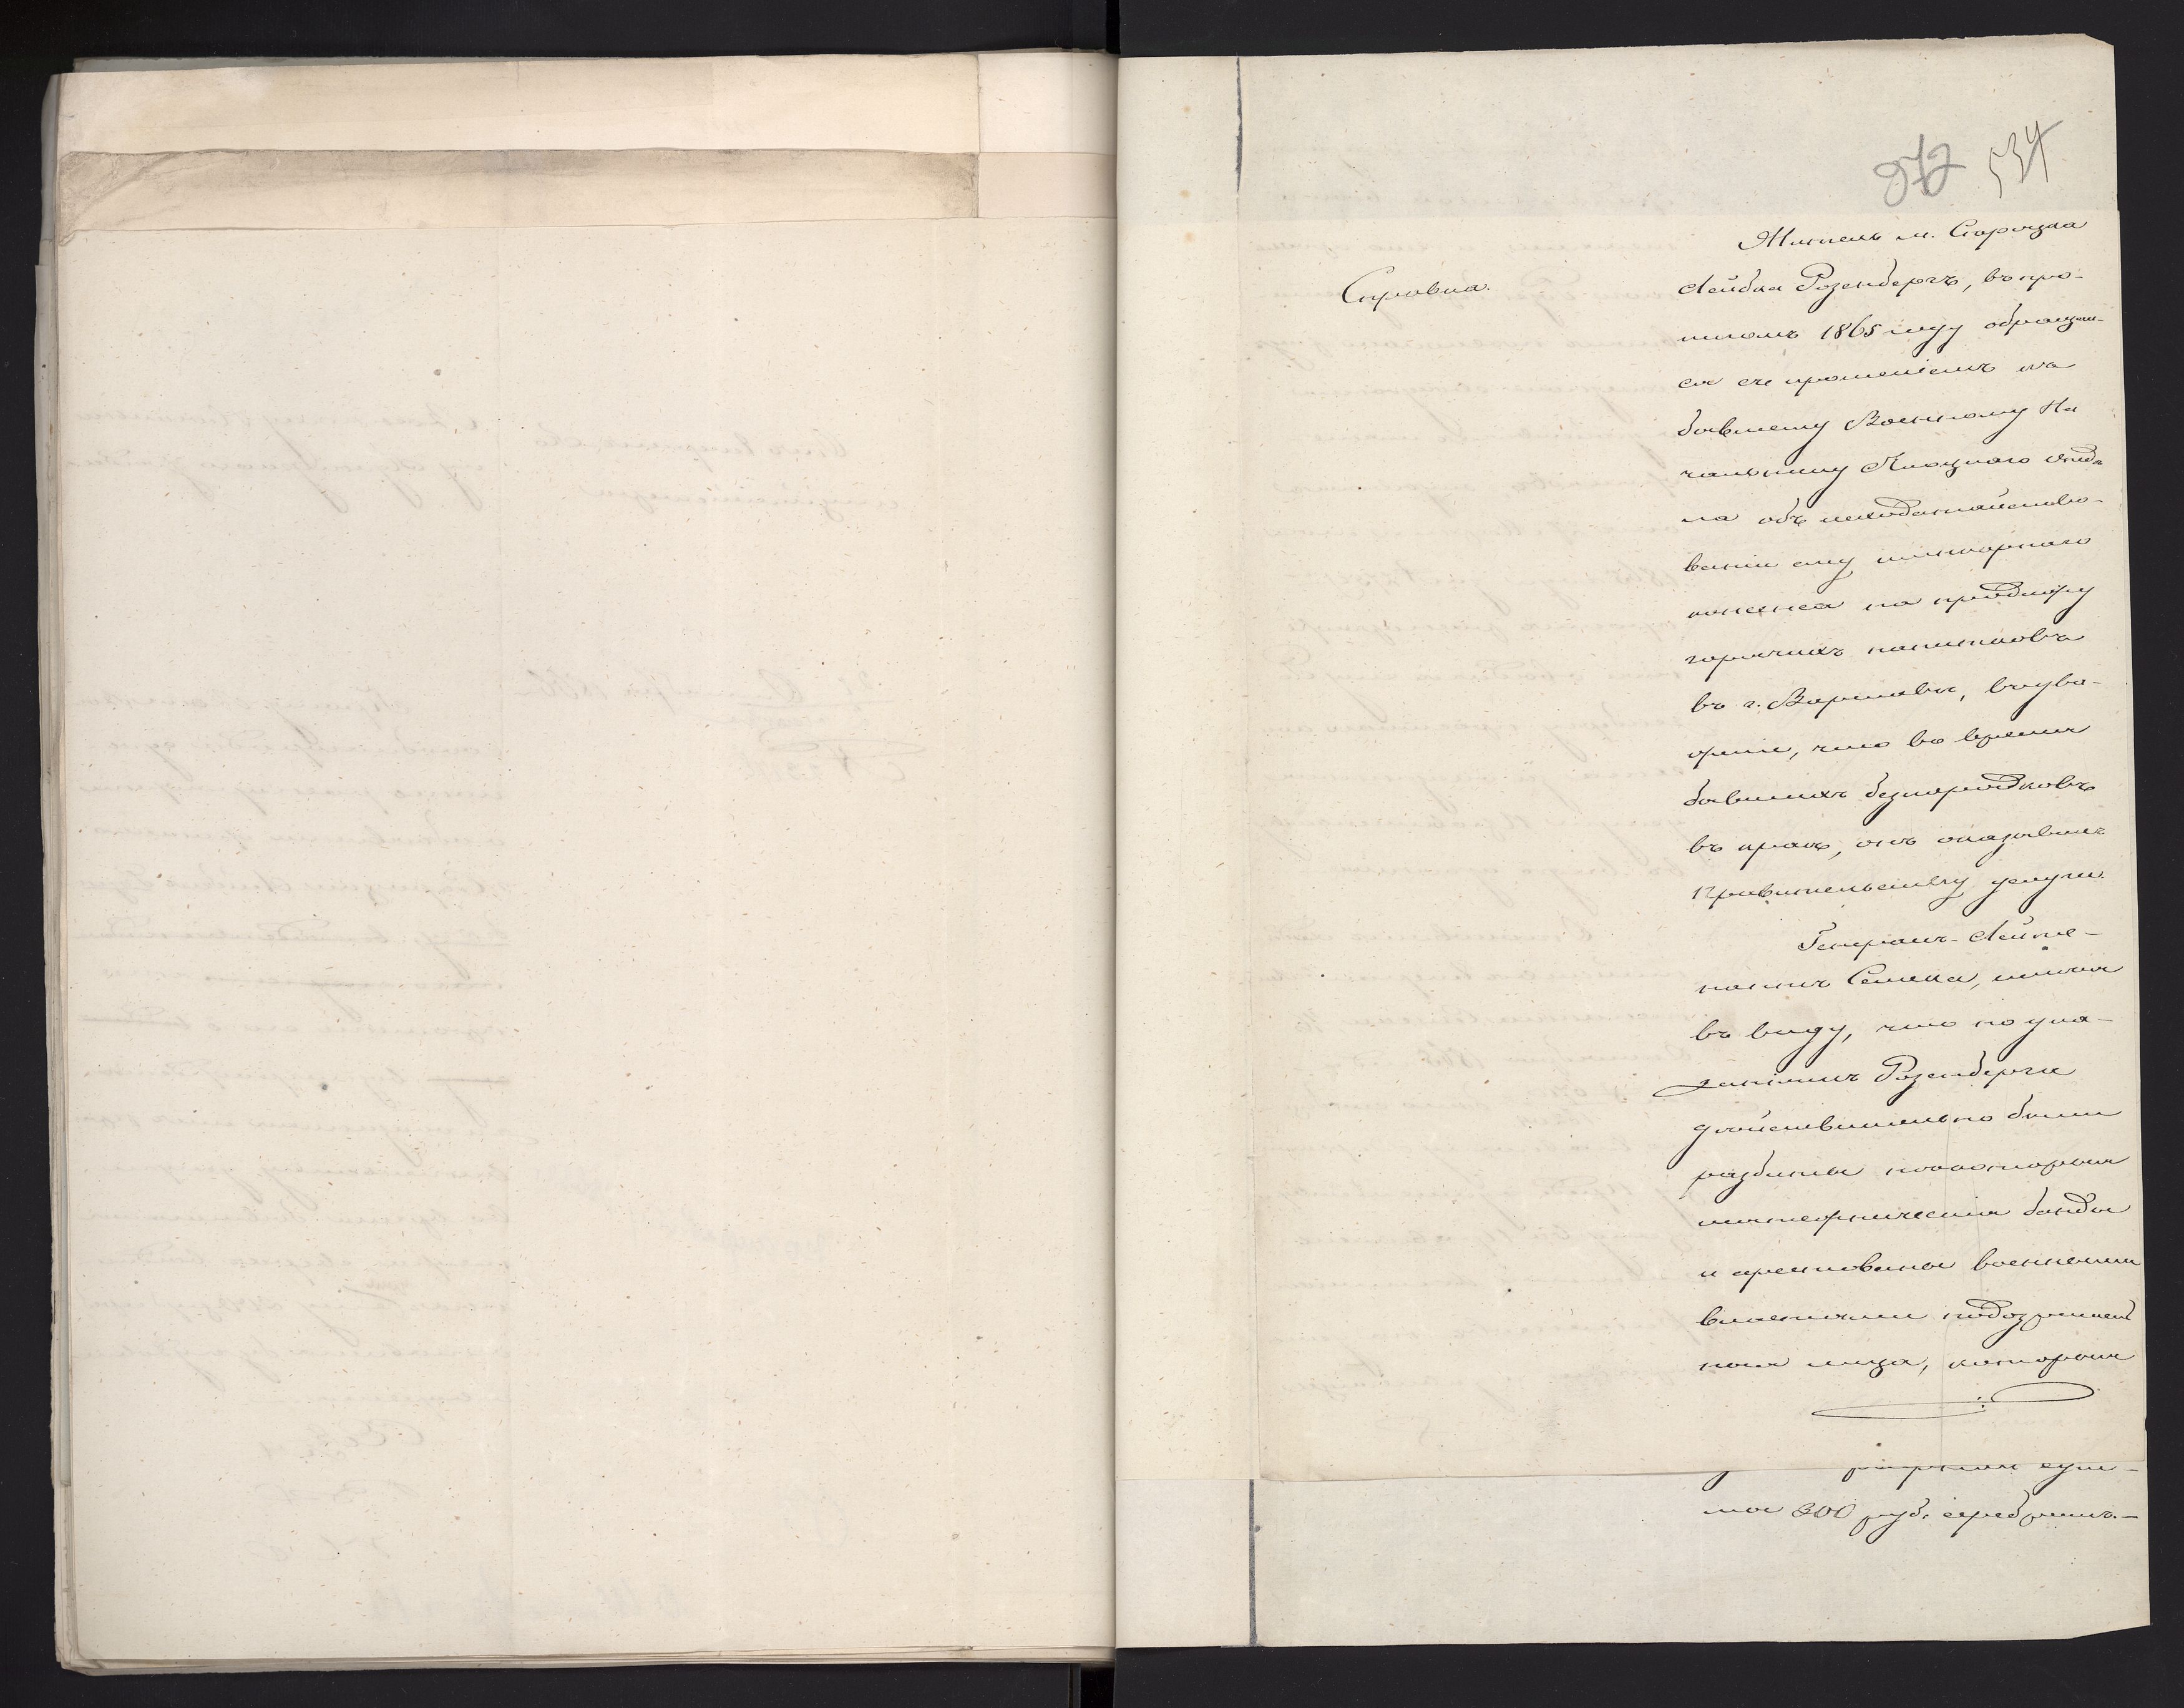 872 534
Справка.
Житель м. Сероцка
Лейбка Розенбергъ, въ про-
шломъ 1865 году обращал-
ся съ прошеніемъ къ
бывшему Военному На
чальнику Плоцкаго Отдѣ
ла объ исходатайство-
ваніи ему шинкарнаго
консенса на продажу
горячихъ напитковъ
въ г. Варшавѣ, выгово-
что во время
бывшихъ безпорядковъ
въ краѣ, онъ оказывалъ
Правительству услуги.
Генералъ-Лейте-
нантъ Семека, имѣя
въ виду, что по ука-
заніямъ Розенберга
дѣйствительно были
разбиты нѣкоторыя
мятежническія банды
и арестованы военными
властями подозритель
ныя лица, которыя
мы 300 руб. серебромъ.—